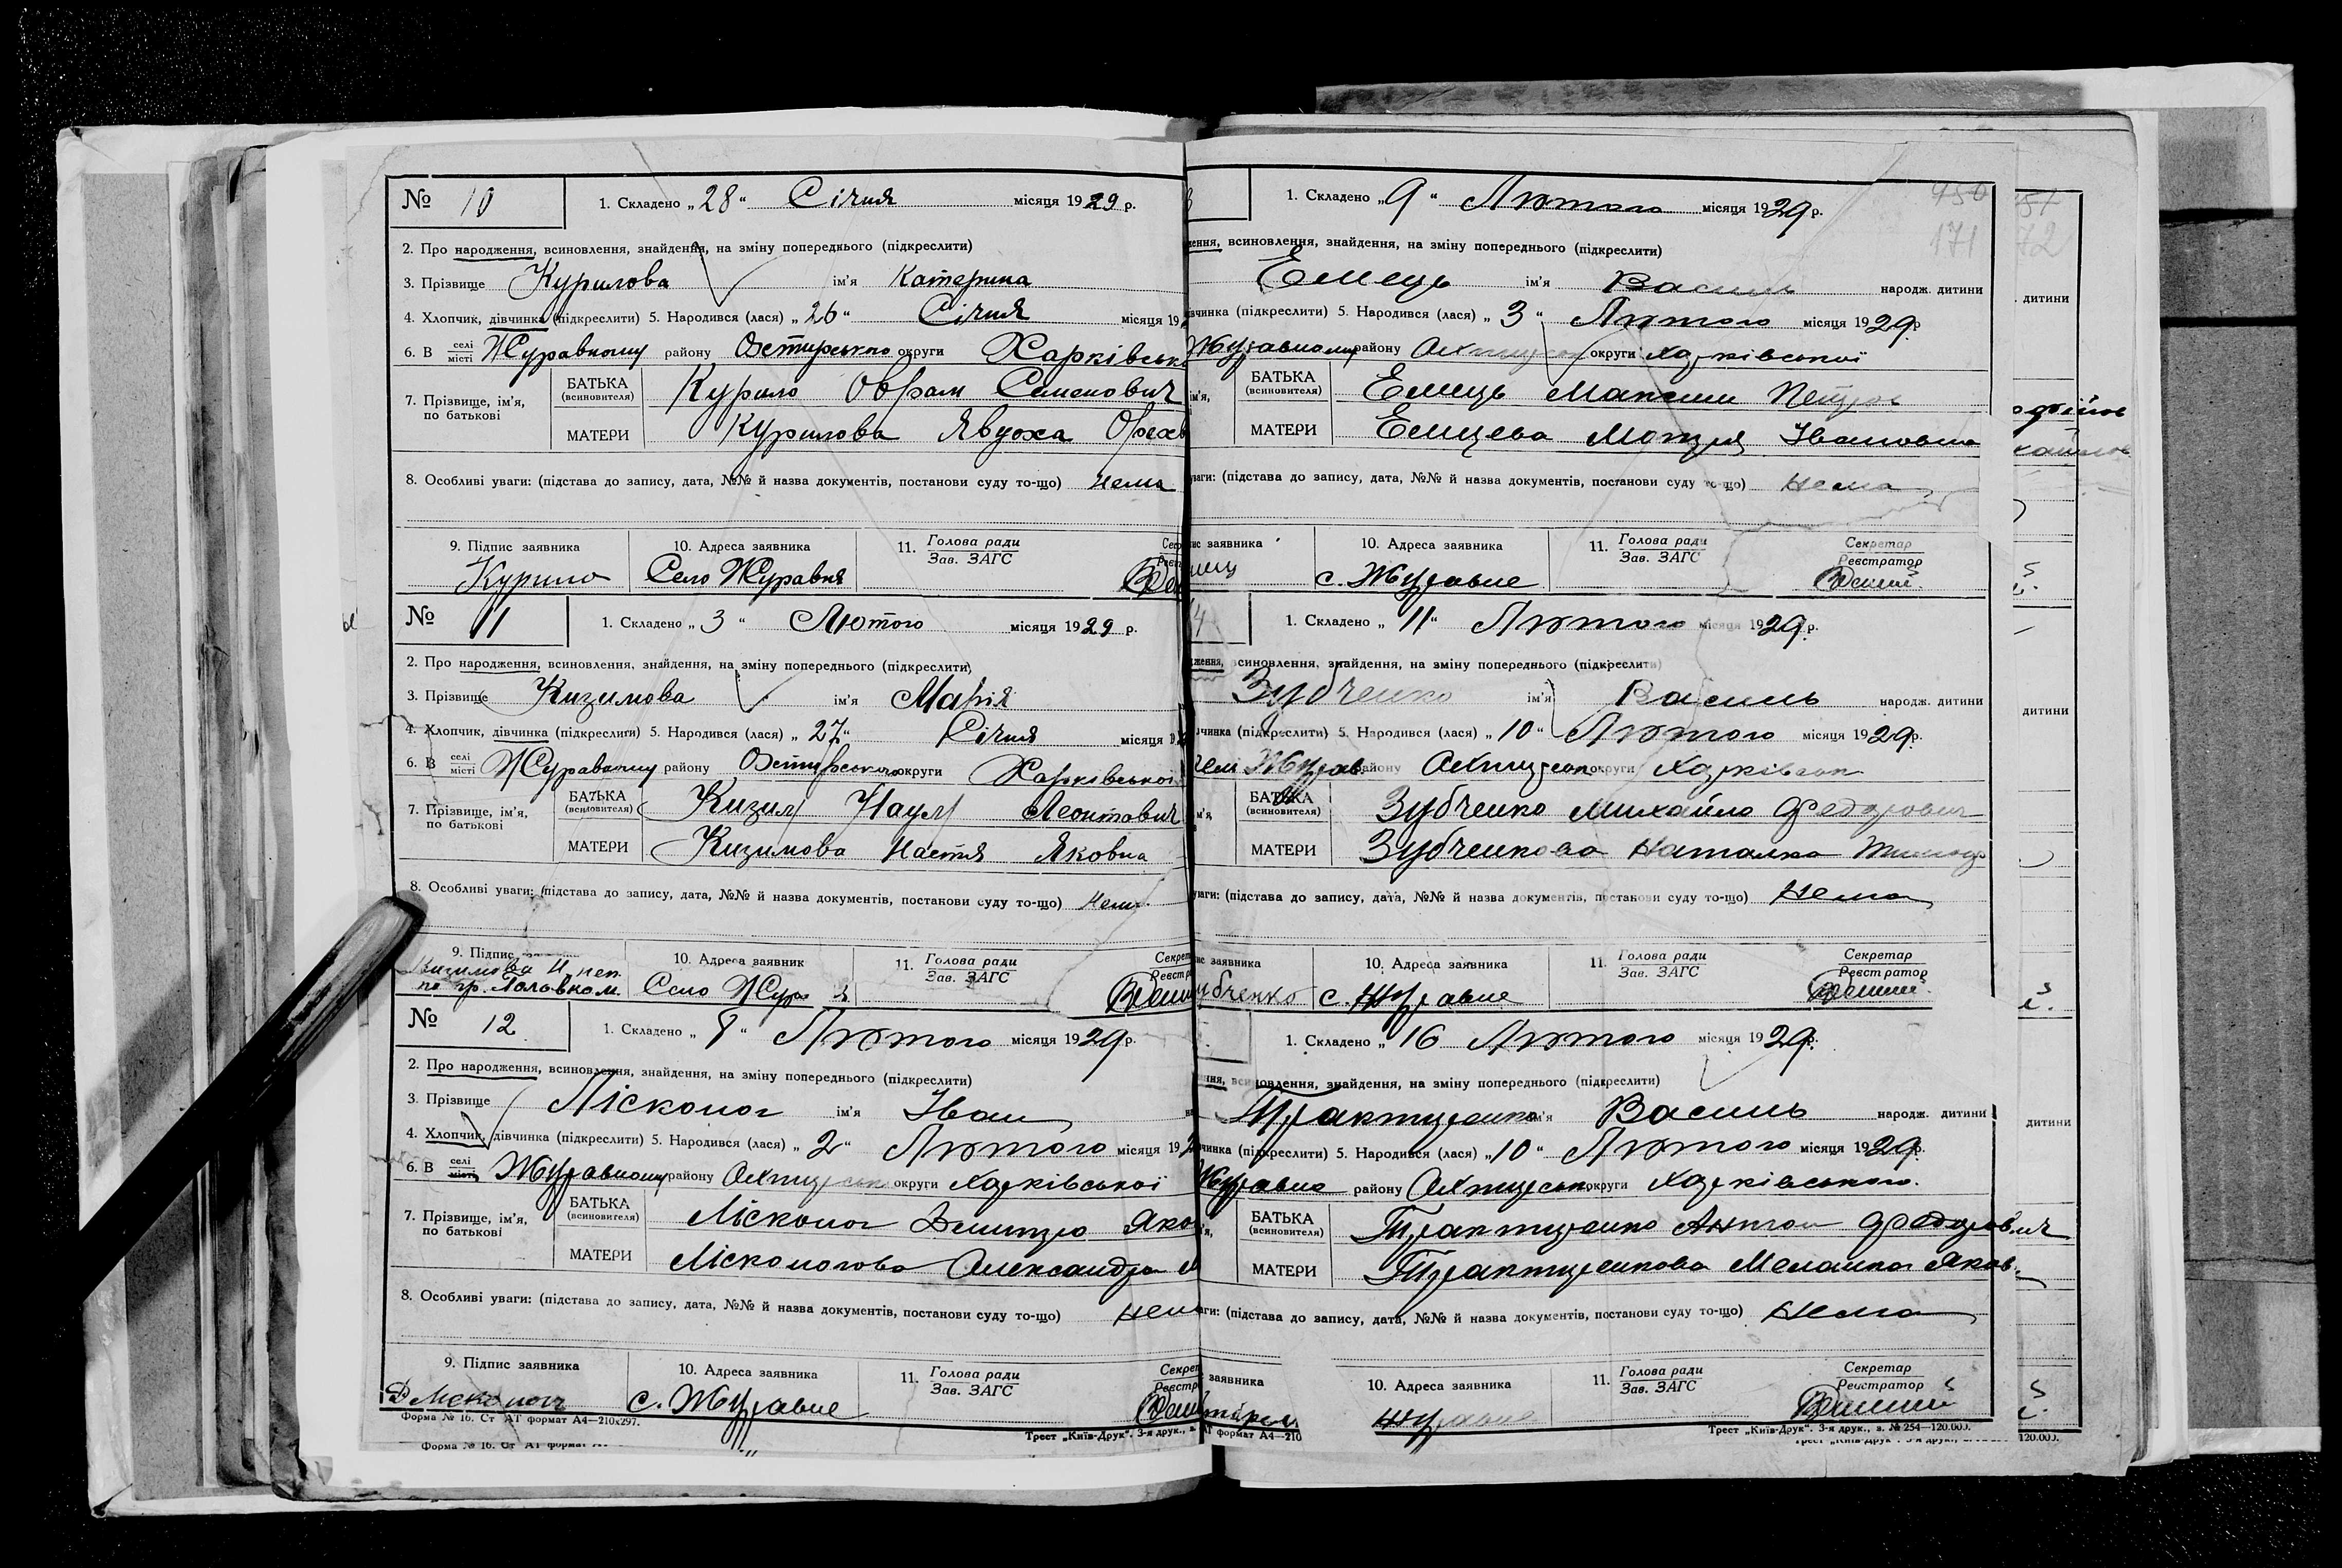 № 10 1. Складено „28“ Січня місяця 1929 р.
2. Про народження, всиновлення, знайдення, на зміну попереднього (підкреслити)
3. Прізвище Курилова ім'я Катерина
4. Хлопчик, дівчинка (підкреслити) 5. Народився (лася) „26“ Січня місяця 19
6. В селі місті Журавному району Охтирсько округи Харківськ
7. Прізвище, ім'я, по батькові БАТЬКА (всиновителя) Курило Оврам Семенович
МАТЕРИ Курилова Явдоха
8. Особливі уваги: (підстава до запису, дата, №№ й назва документів, постанови суду то-що) нема
9. Підпис заявника 10. Адреса заявника 11. Голова ради Зав. ЗАГС
Курило Село Журавня
№ 11 1. Складено „3“ Лютого місяця 1929 р.
2. Про народження, всиновлення, знайдення, на зміну попереднього (підкреслити)
3. Прізвище Кизимова ім'я Марія
4. Хлопчик, дівчинка (підкреслити) 5. Народився (лася) „27“ Січня місяця
6. В селі місті Журавному району округи Харківської
7. Прізвище, ім'я, по батькові БАТЬКА (всиновителя) Кизим Наум Леонтович
МАТЕРИ Кизимова Настя Яковна
8. Особливі уваги: (підстава до запису, дата, №№ й назва документів, постанови суду то-що) Нема
9. Підпис 10. Адреса заявник 11. Голова ради Зав. ЗАГС
Кизимова Н. неп.
по гр. Головком. Село Жур
№ 12 1. Складено „8“ Лютого місяця 1929 р.
2. Про народження, всиновлення, знайдення, на зміну попереднього (підкреслити)
3. Прізвище Лісконог ім'я Іван
4. Хлопчик, дівчинка (підкреслити) 5. Народився (лася) „2“ Лютого місяця 19
6. В селі місті Журавному району Охтирськ округи Харківської
7. Прізвище, ім'я, по батькові БАТЬКА (всиновителя) Лісконог Дмитро Яко
МАТЕРИ Лісконогова Александра
8. Особливі уваги: (підстава до запису, дата, №№ й назва документів, постанови суду то-що) нем
9. Підпис заявника 10. Адреса заявника 11. Голова ради Зав. ЗАГС
с. Журавне
Форма № 16. Ст АТ формат А4—210х297. Трест „Київ-Друк“. 3-я друк., з.
1. Складено „9“ Лютого місяця 1929 р. 450
171
всиновлення, знайдення, на зміну попереднього (підкреслити)
Емець ім'я Василь народж. дитини
(підкреслити) 5. Народився (лася) „3“ Лютого місяця 1929 р
Журавному району округи Харківської
БАТЬКА (всиновителя) Емець Максим Петров
МАТЕРИ Емцева Мотря Івановна
(підстава до запису, дата, №№ й назва документів, постанови суду то-що) нема
заявника 10. Адреса заявника 11. Голова ради Зав. ЗАГС Секретар Реєстратор
с. Журавне
1. Складено „11“ Лютого місяця 1929 р.
всиновлення, знайдення, на зміну попереднього (підкреслити)
Зубченко ім'я Василь народж. дитини
(підкреслити) 5. Народився (лася) „10“ Лютого місяця 1929 р.
Журав району Охтирськ округи Харківськ
БАТЬКА (всиновителя) Зубченко Михайло Федорович
МАТЕРИ Зубченкова Наталка
(підстава до запису, дата, №№ й назва документів, постанови суду то-що) Нема
заявника 10. Адреса заявника 11. Голова ради Зав. ЗАГС Секретар Реєстратор
с. Журавне
1. Складено „16 Лютого місяця 1929 р.
всиновлення, знайдення, на зміну попереднього (підкреслити)
Трактиренко ім'я Василь народж. дитини
(підкреслити) 5. Народився (лася) „10“ Лютого місяця 1929 р.
Журавне району Охтирськ округи Харківського.
БАТЬКА (всиновителя) Трактиренко Антон Федорович
МАТЕРИ Трактиренкова Меланка Яков.
(підстава до запису, дата, №№ й назва документів, постанови суду то-що) Нема
заявника 10. Адреса заявника 11. Голова ради Зав. ЗАГС Секретар Реєстратор
Журавне
формат А4—210 Трест „Київ-Друк“. 3-я друк., з. № 254—120.000.
дитини
дитини
дитини
120.000.